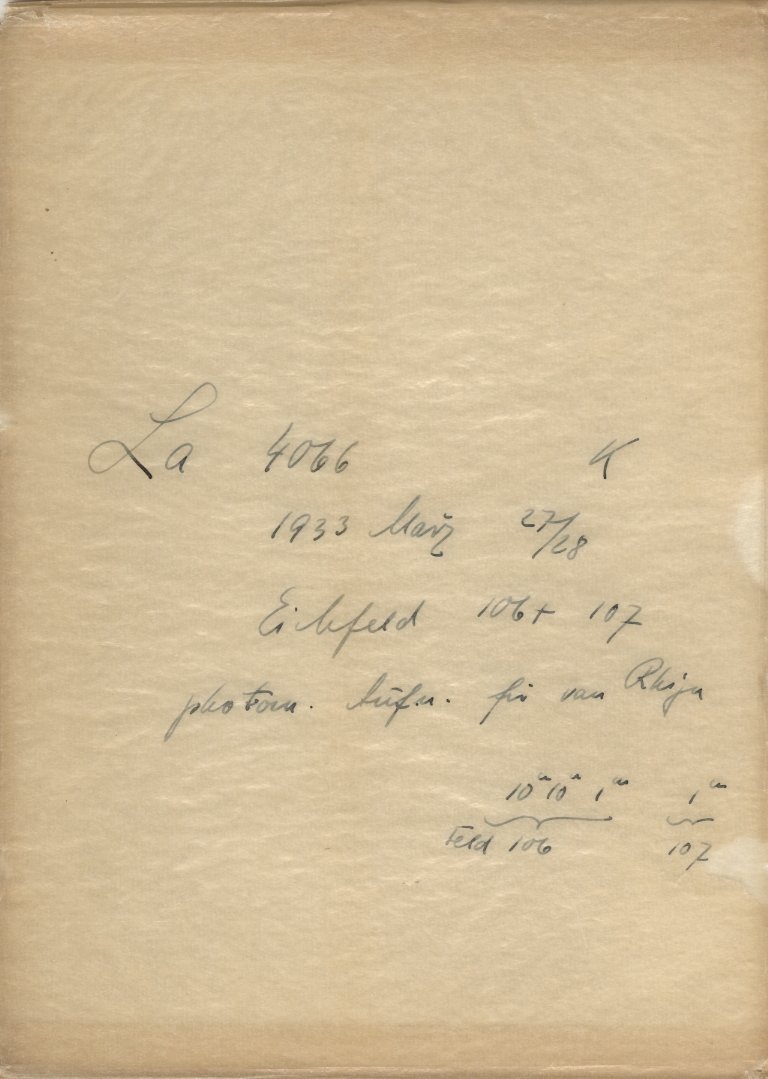 La 4066 K
1933 März 27/28
Eichfeld 106 + 107
photom. Aufn. für van Rhijn
10ᵐ 10ᵐ 1ᵐ 1ᵐ
Feld 106 107